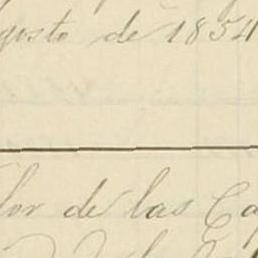 agosto de 1854
lor de las Ca